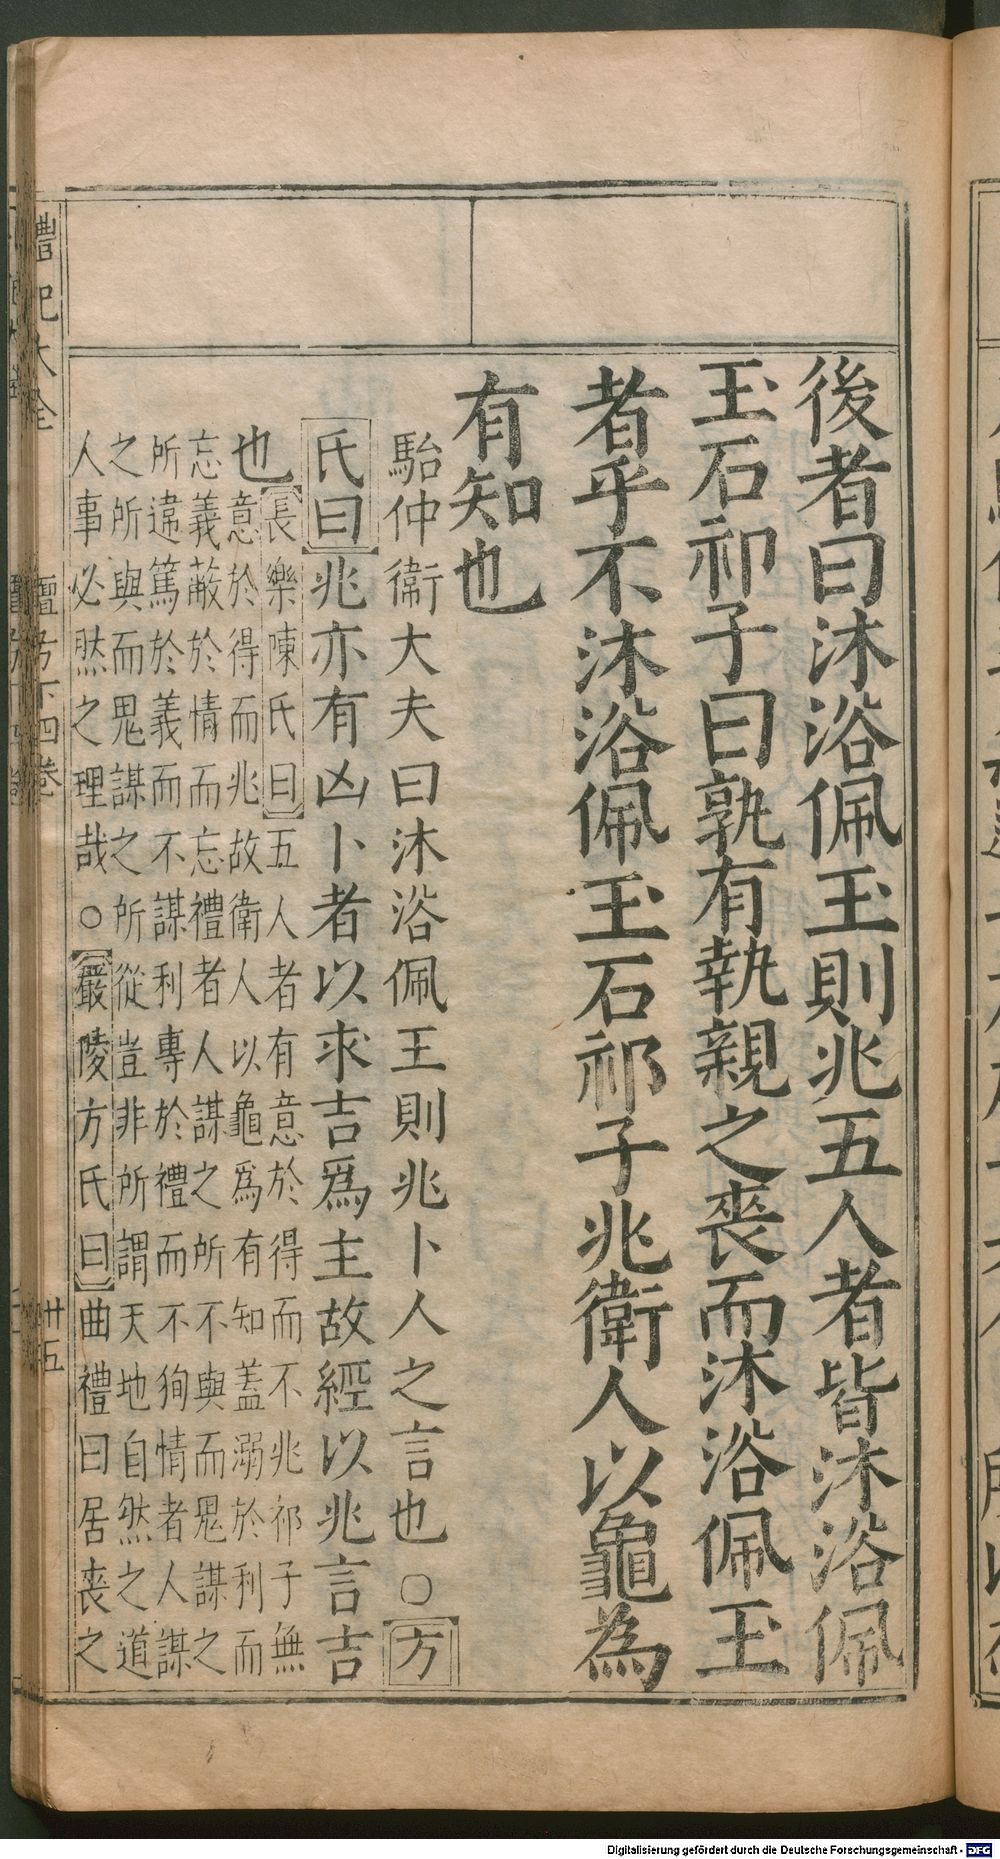 後者曰沐浴佩玉則兆五人者皆沐浴佩
玉石祁子曰孰有執親之喪而沐浴佩玉
者乎不沐浴佩玉石祁子兆衛人以龜為
有知也
駘仲衞大夫曰沐浴佩玉則兆卜人之言也○方
氏曰兆亦有凶卜者以求吉爲主故經以兆言吉
也
長樂陳氏曰五人者有意於得而不兆祁子無
意於得而兆故衛人以龜爲有知蓋溺於利而
忘義蔽於情而忘禮者人謀之所不與而鬼謀之
所違篤於義而不謀利專於禮而不狥情者人謀
之所與而鬼謀之所從豈非所謂天地自然之道
人事必然之理哉○嚴陵方氏曰曲禮曰居喪之
禮記大全
檀弓下四卷
卅五
Digitalisierung gefördert durch die Deutsche Forschungsgemeinschaft - DFG